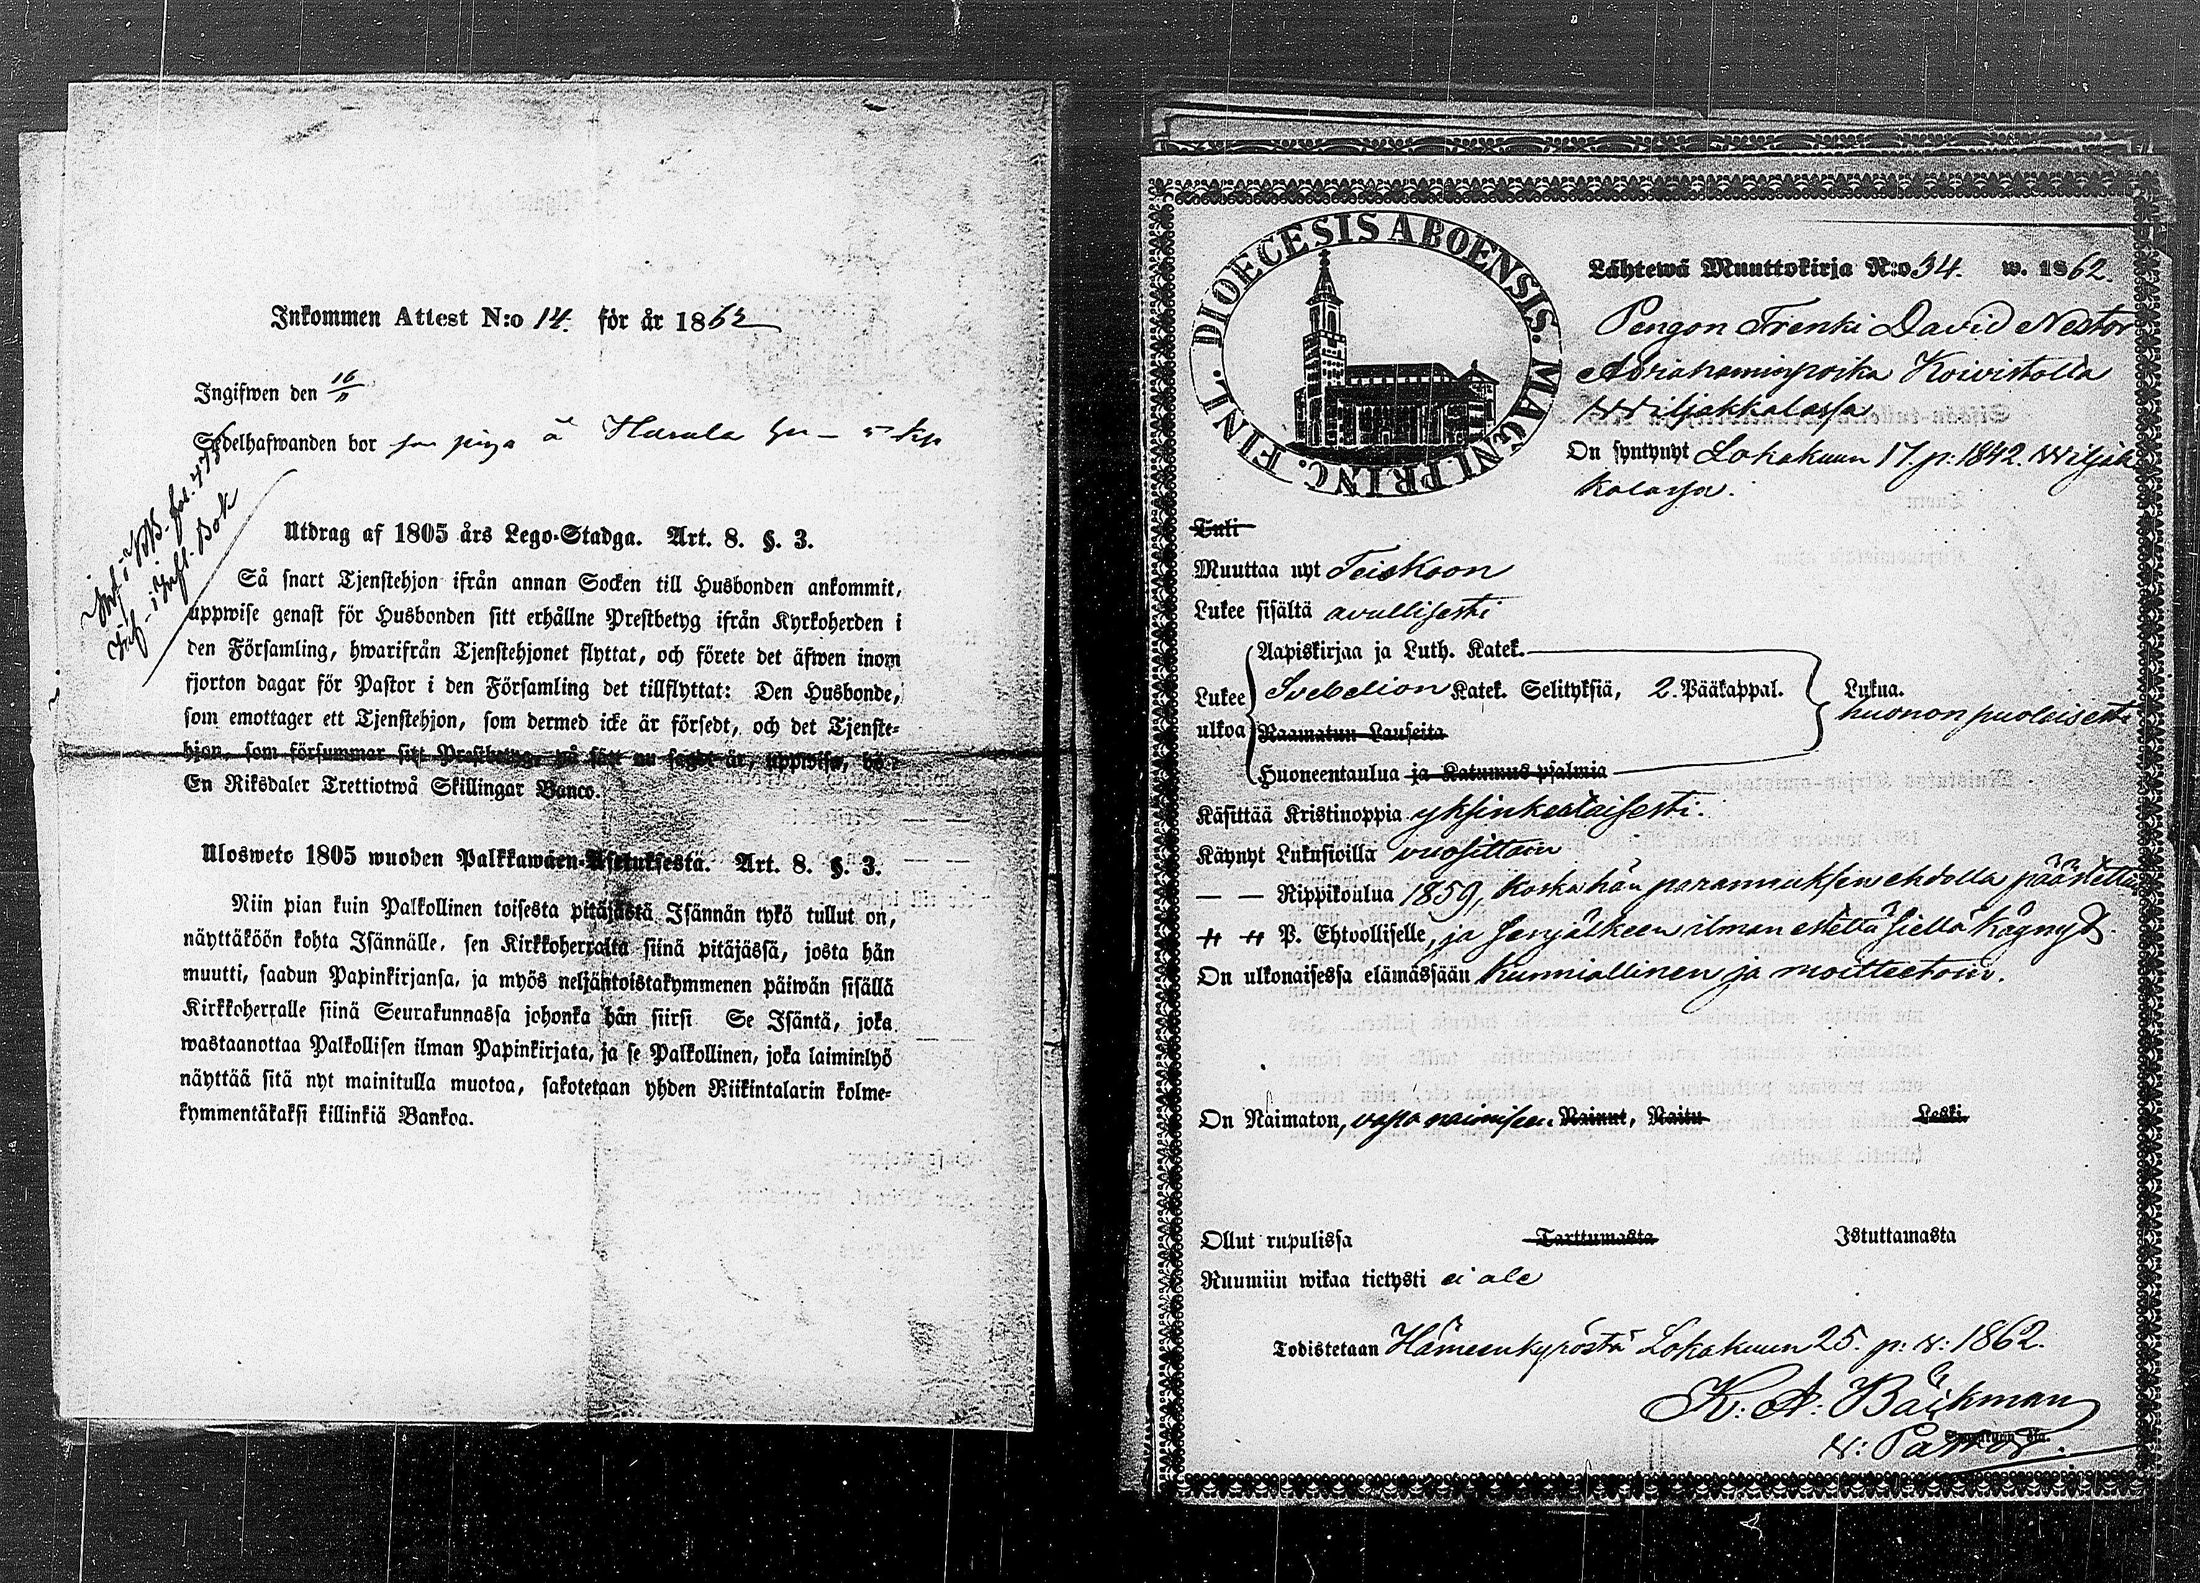 Inkommen Attest N:o 14. för år 1862
Ingifwen den 16/11
Sedelhafwanden bor som piga å Harala
Utdrag af 1805 års Lego-Stadga. Art. 8. §. 3.
Så snart Tjenstehjon ifrån annan Socken till Husbonden ankommit,
uppwise genast för Husbonden sitt erhållne Prestbetyg ifrån Kyrkoherden i
den Församling, hwarifrån Tjenstehjonet flyttat, och förete det äfwen inom
fjorton dagar för Pastor i den Församling det tillflyttat: Den Husbonde,
som emottager ett Tjenstehjon, som dermed icke är försedt, och det Tjenste-
hjon, som försummar sitt Prestbetyg, på sätt nu sagdt är, uppwisa, böte
En Riksdaler Trettiotwå Skillingar Banco.
Ulosweto 1805 wuoden Palkkawäen-Asetuksesta. Art. 8. §. 3.
Niin pian kuin Palkollinen toisesta pitäjästä Isännän tykö tullut on,
näyttäköön kohta Isännälle, sen Kirkkoherralta siinä pitäjässä, josta hän
muutti, saadun Papinkirjansa, ja myös neljäntoistakymmenen päiwän sisällä
Kirkkoherralle siinä Seurakunnassa johonka hän siirsi Se Isäntä, joka
wastaanottaa Palkollisen ilman Papinkirjata, ja se Palkollinen, joka laiminlyö
näyttää sitä nyt mainitulla muotoa, sakotetaan yhden Riikintalarin kolme-
kymmentäkaksi killinkiä Bankoa.
DIOECESIS ABOENSIS. MAGNI PRINC. FINL.
Lähtewä Muuttokirja N:o 34. w. 1862.
Pengon Trenki David Nestor
Abrahaminpoika Koivistolla
Wiljakkalassa
On syntynyt Lokakuun 17. p: 1842. Wiljak
kalassa.
Tuli
Muuttaa nyt Teiskoon
Lukee sisältä avullisesti
Aapiskirjaa ja Luth. Katek.
Lukee Svebelion Katek. Selityksiä, 2. Pääkappal. Lukua.
huononpuoleisesti
ulkoa Raamatun Lauseita
Huoneentaulua ja Katumus psalmia
Käsittää Kristinoppia yksinkertaisesti.
Käynyt Lukusioilla vuosittain
— — Rippikoulua 1859, koska hän parannuksen ehdolla päästettiin
P. Ehtoolliselle, ja senjälkeen ilman estettä siellä käynyt.
On ulkonaisessa elämässään kunniallinen ja moitteetoin.
On Naimaton, vapa naimiseen. Nainut, Naitu Leski.
Ollut rupulissa Tarttumasta Istuttamasta
Ruumiin wikaa tietysti ei ole
Todistetaan Hämeenkyröstä Lokakuun 25. p: v: 1862.
K: A: Bäckman
v: Pastor.